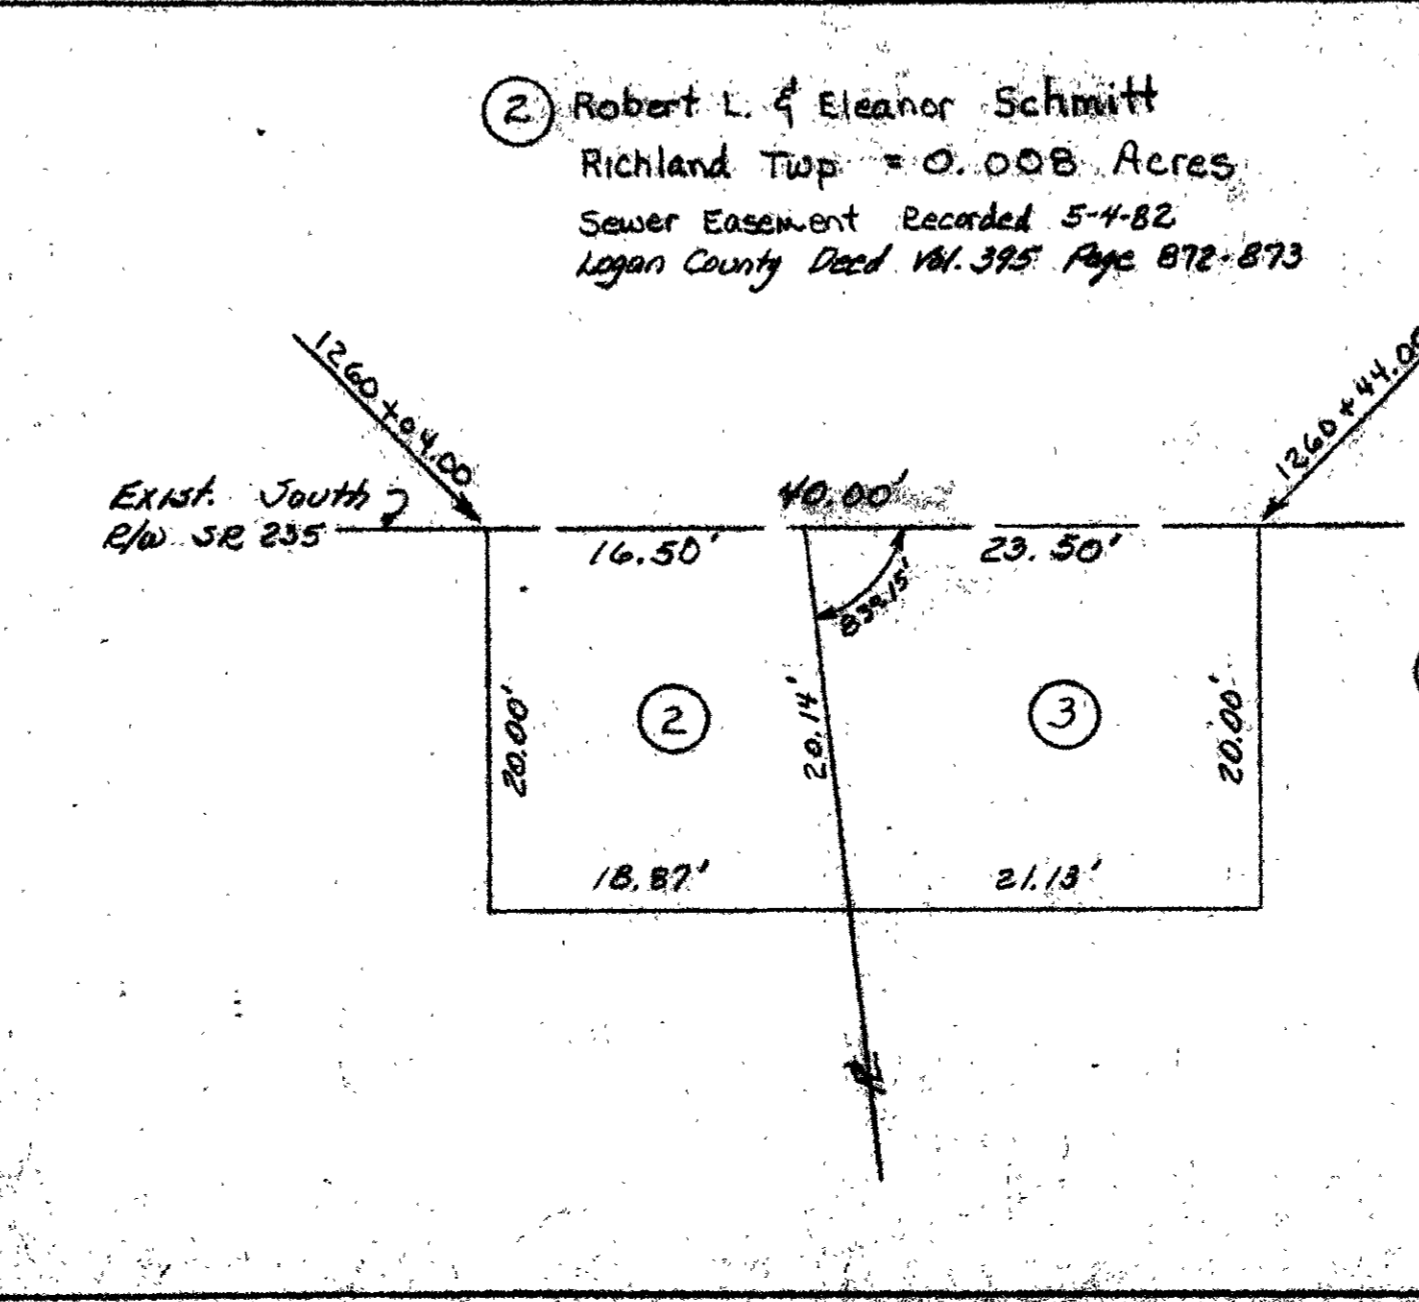 2 Robert L. & Eleanor Schmitt
Richland Twp = 0.008 Acres
Sewer Easement Recorded 5-4-82
Logan County Deed Vol. 395 Page 872-873
1260+04.00
1260+44.00
Exist. South
R/W SR 235
40.00'
16.50'
23.50'
83°15'
20.00'
2
20.14'
3
20.00'
18.87'
21.13'